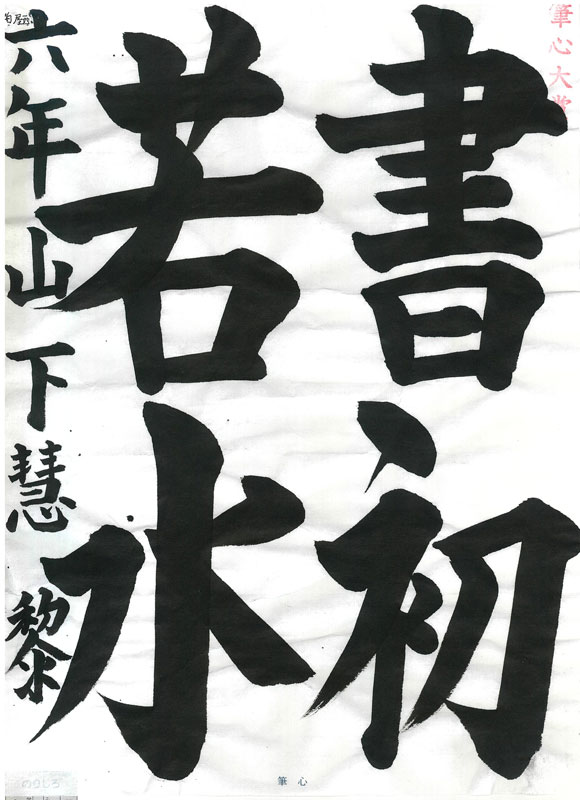 筆心大賞
書初
若水
六年山下慧黎
筆心